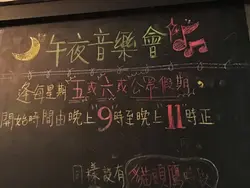 午夜音樂會
逢每星期五或六或公眾假期，
開始時間由晚上9時至晚上11時正
同樣設有貓頭鷹